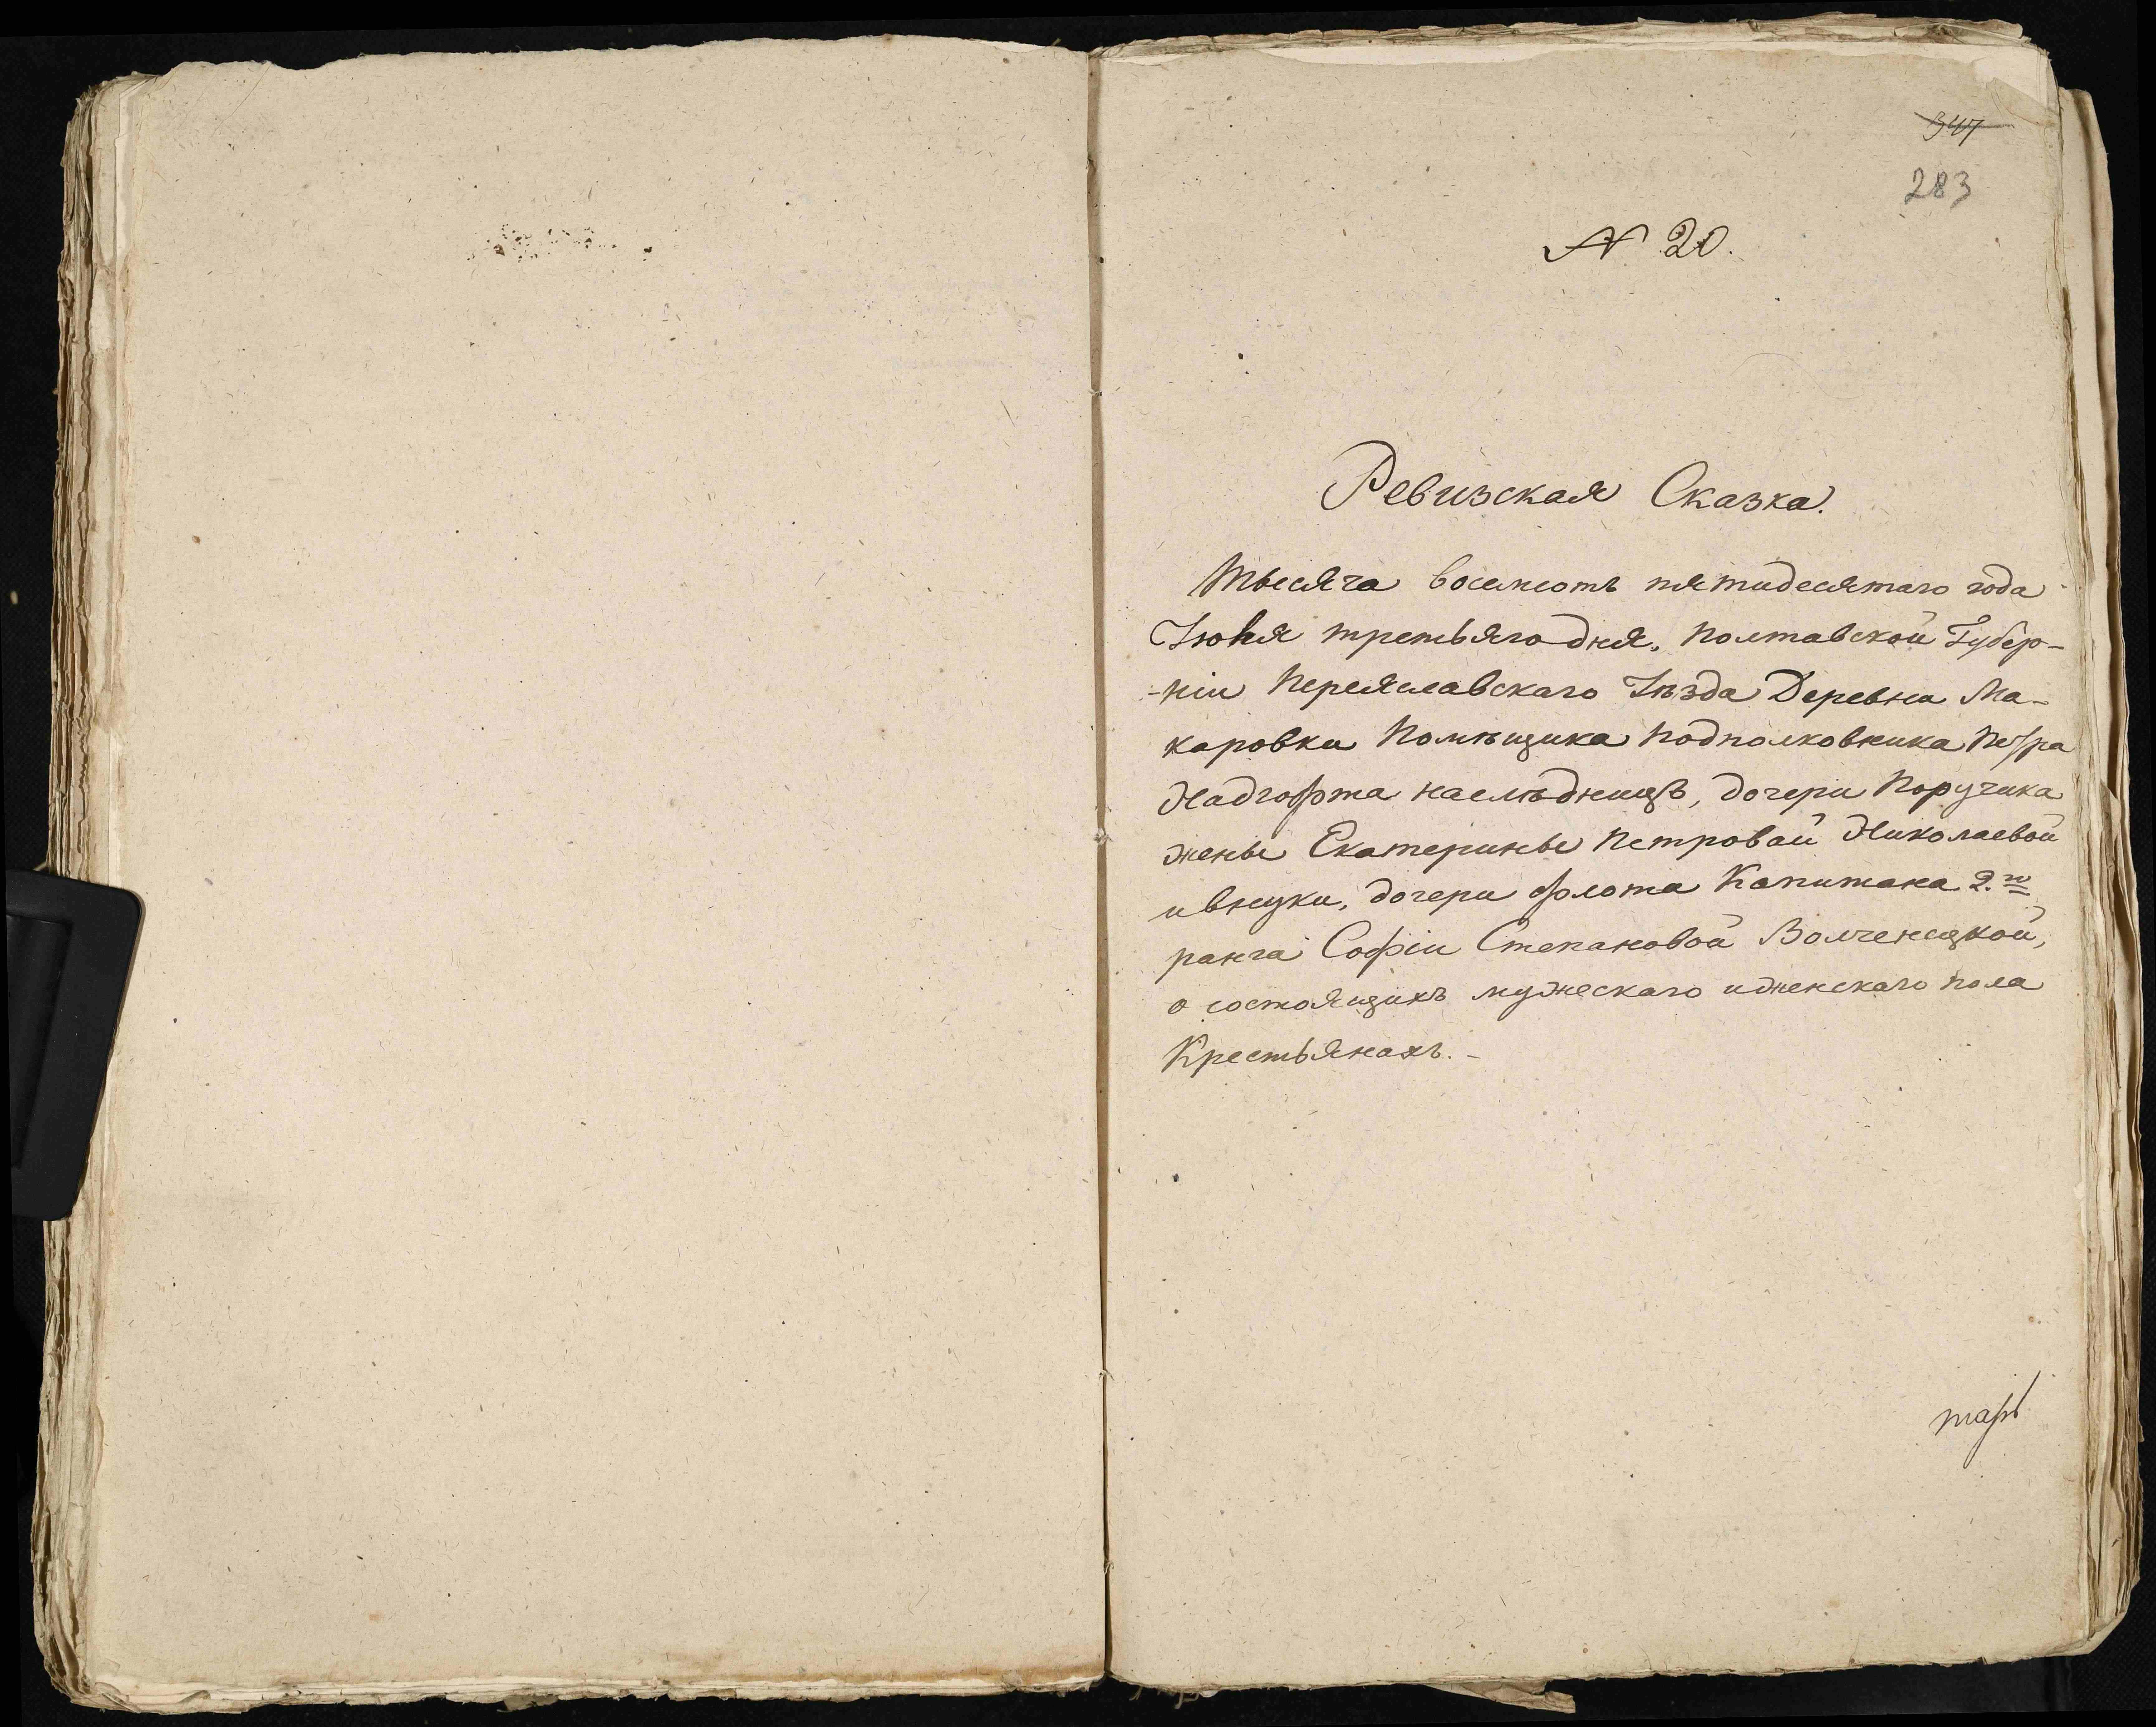 347
283
N 20.
Ревизская Сказка.
Тысяча восемсотъ пятидесятаго года
Іюня третьяго дня. Полтавской Губер-
-ніи Переяславскаго Уѣзда Деревни Ма-
каровки Помѣщика Подполковника Петра
Надгофта наслѣдницъ, дочери Поручика
жены Екатерины Петровай Николаевой
и внуки, дочери флота Капитана 2.го
ранга Софіи Степановой Волченецкой,
о состоящихъ мужескаго и женскаго пола
Крестьянахъ.-